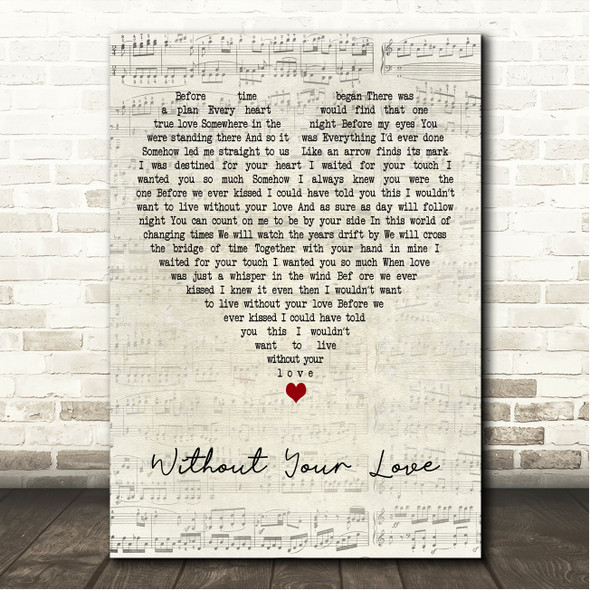 Before time began There was
a plan Every heart would find that one
true love Somewhere in the night Before my eyes You
were standing there And so it was Everything I'd ever done
Somehow led me straight to us Like an arrow finds its mark
I was destined for your heart I waited for your touch I
wanted you so much Somehow I always knew you were the
one Before we ever kissed I could have told you this I wouldn't
want to live without your love And as sure as day will follow
night You can count on me to be by your side In this world of
changing times We will watch the years drift by We will cross
the bridge of time Together with your hand in mine I
waited for your touch I wanted you so much When love
was just a whisper in the wind Bef ore we ever
kissed I knew it even then I wouldn't want
to live without your love Before we
ever kissed I could have told
you this I wouldn't
want to live
without your
love
Without Your Love